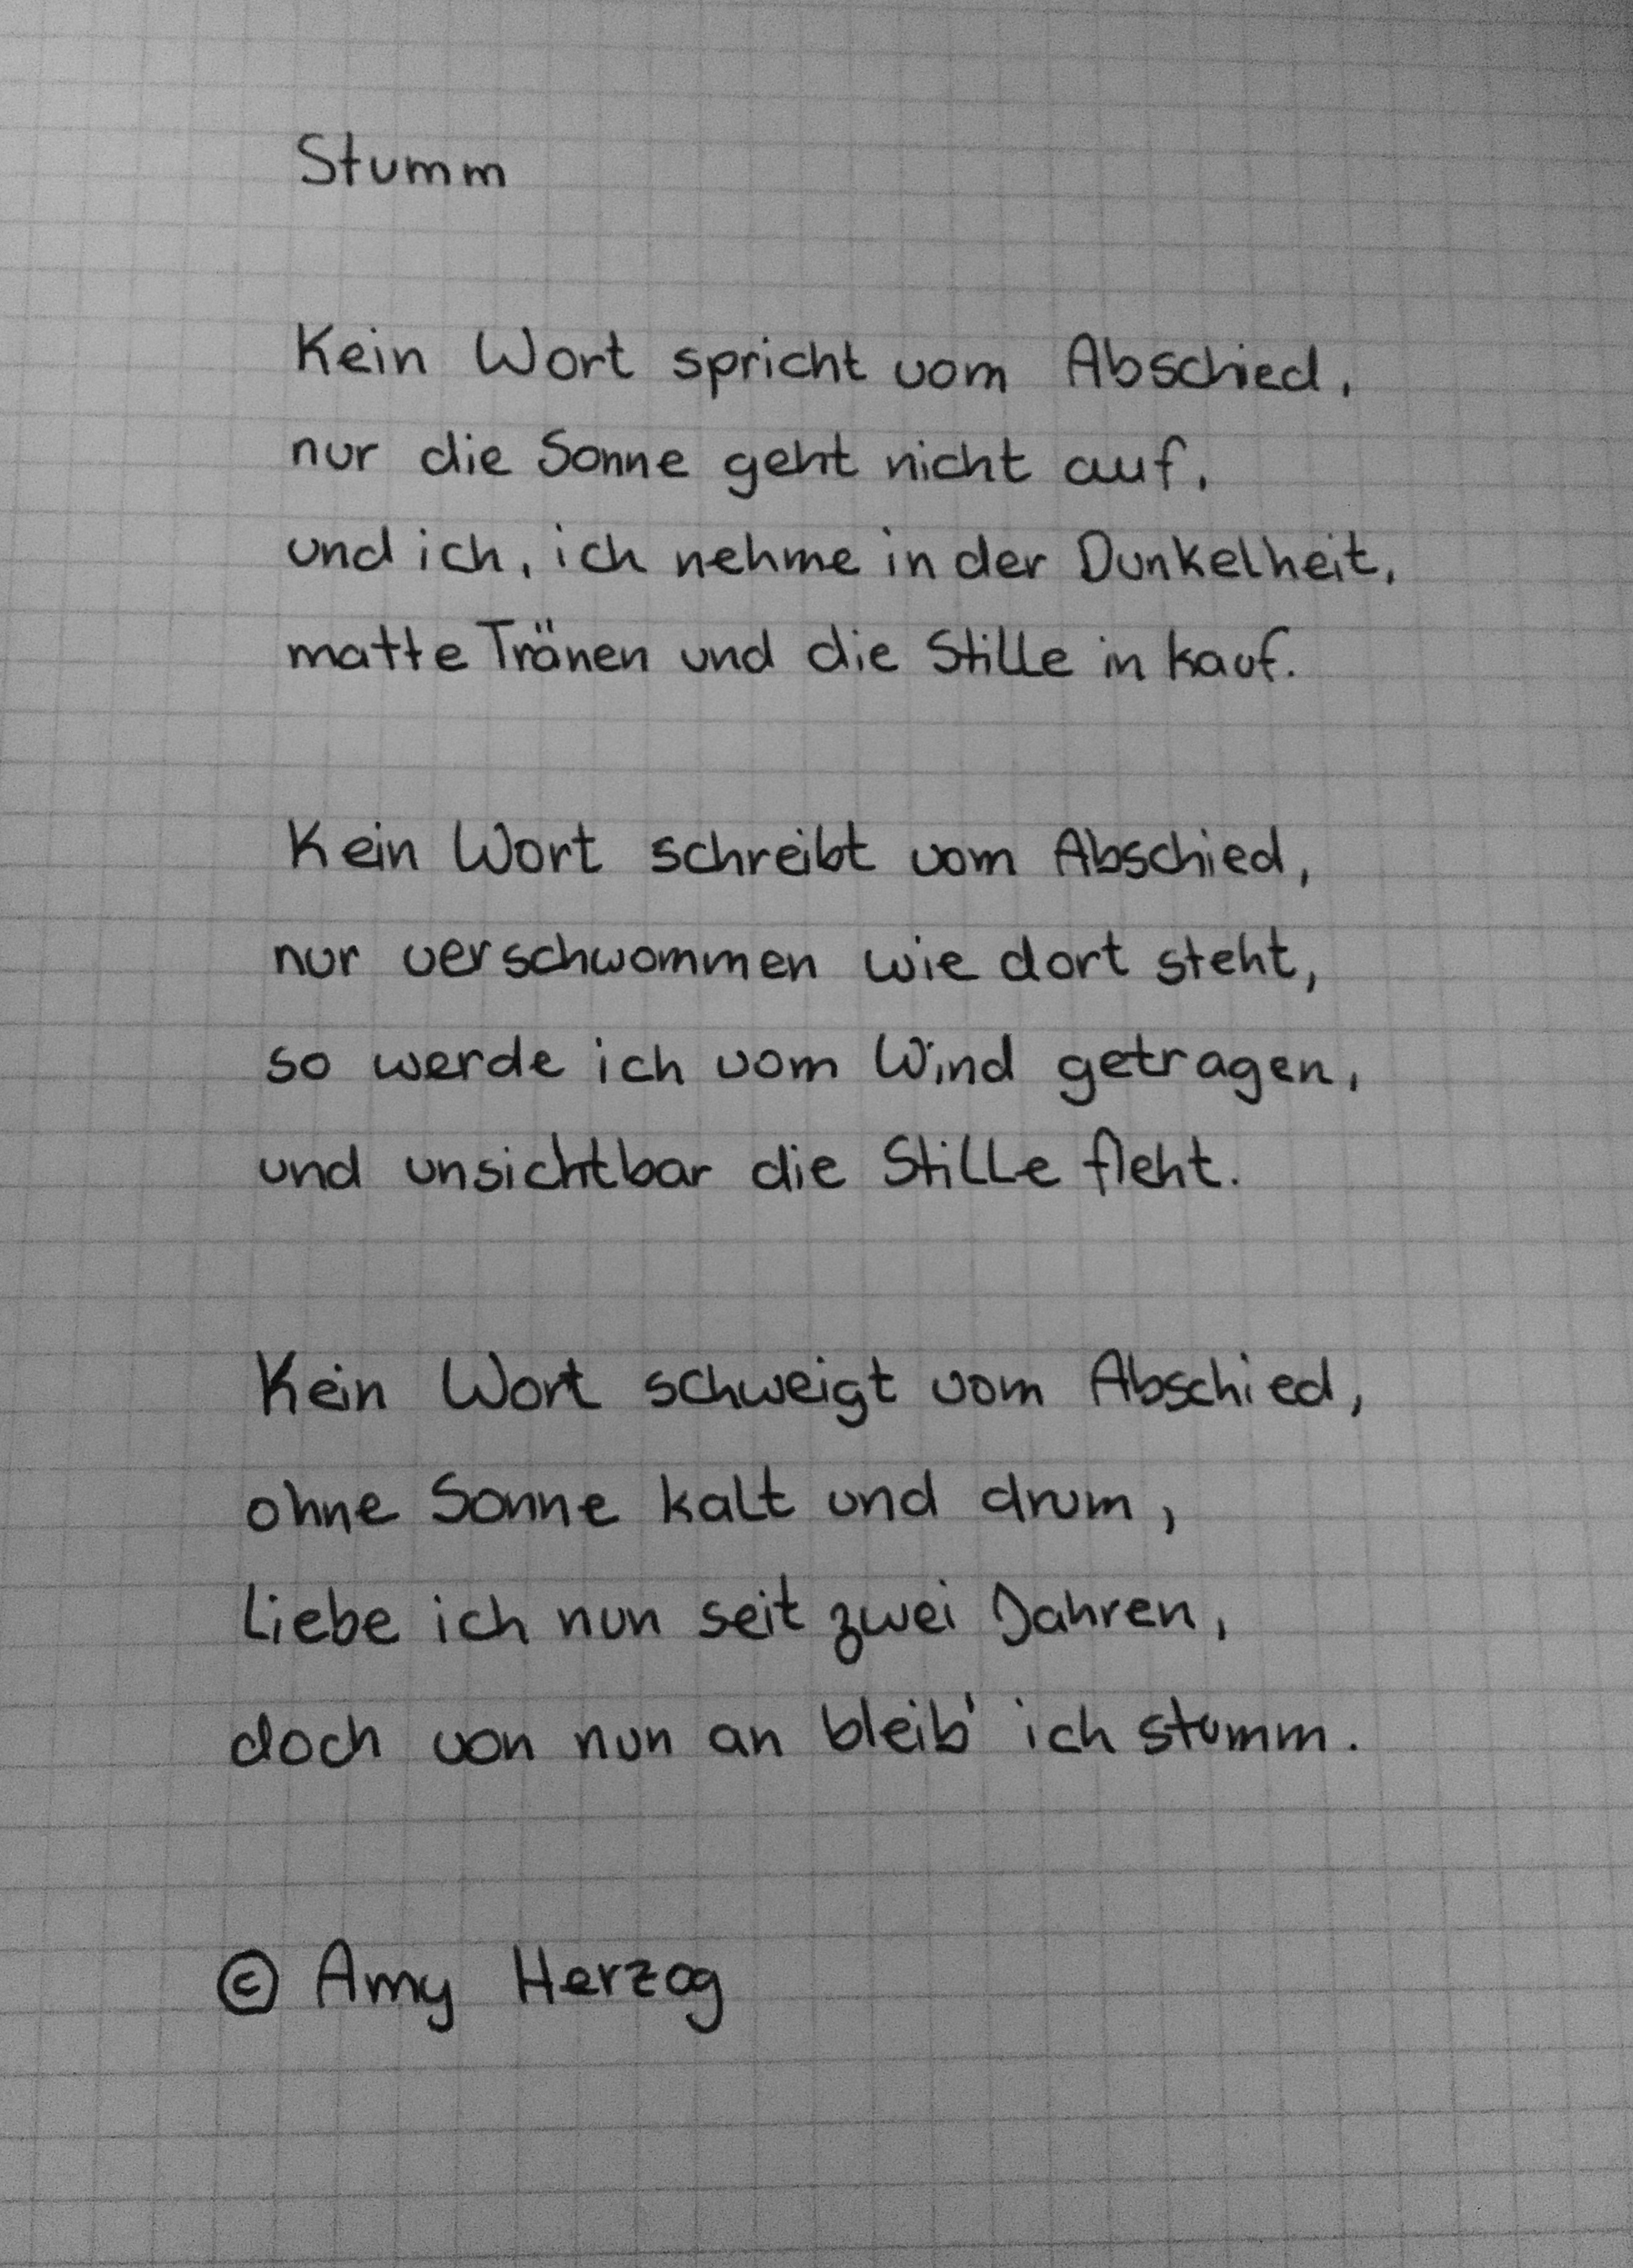 Stumm
Kein Wort spricht vom Abschied,
nur die Sonne geht nicht auf,
und ich, ich nehme in der Dunkelheit,
matte Tränen und die Stille in kauf.
Kein Wort schreibt vom Abschied,
nur verschwommen wie dort steht,
so werde ich vom Wind getragen,
und unsichtbar die Stille fleht.
Kein Wort schweigt vom Abschied,
ohne Sonne kalt und drum,
liebe ich nun seit zwei Jahren,
doch von nun an bleib' ich stumm.
© Amy Herzog